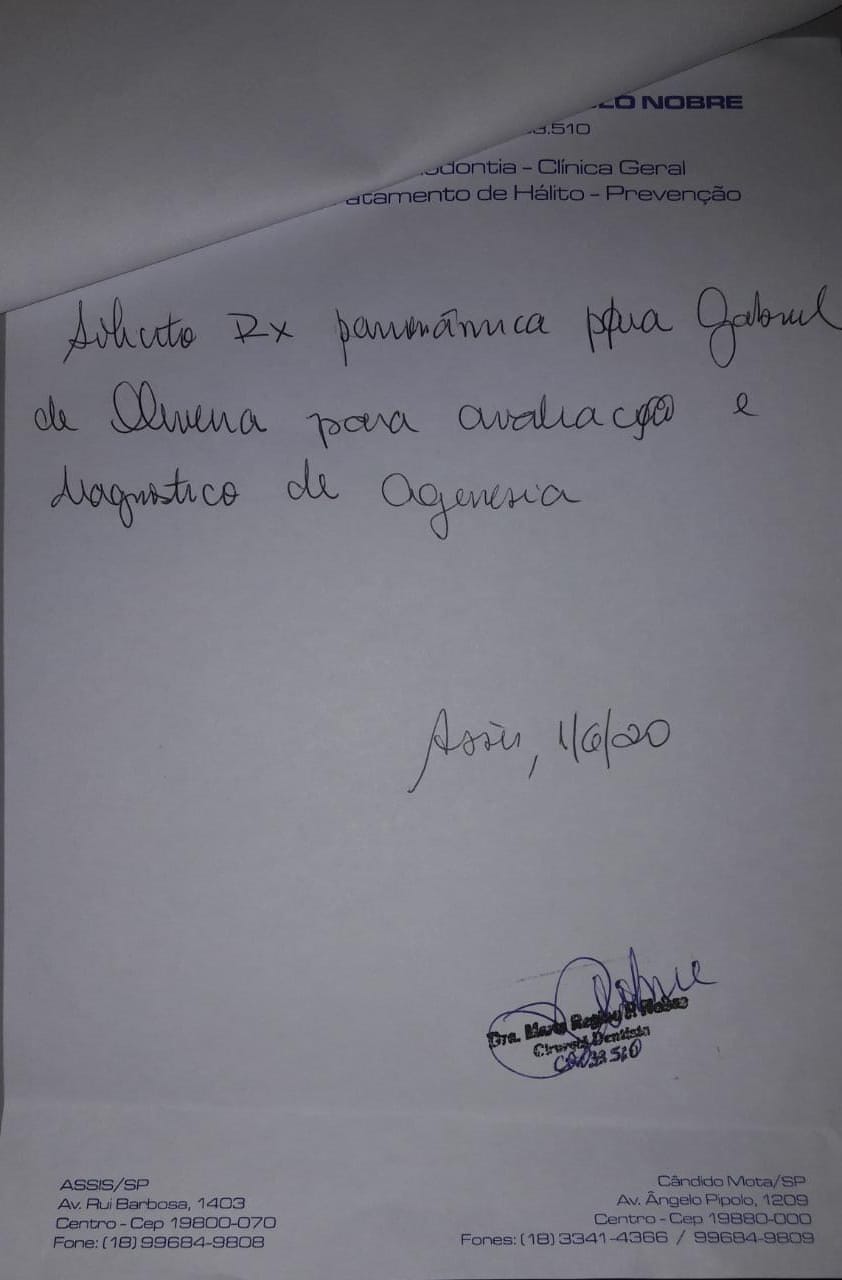 LO NOBRE
3.510
odontia - Clínica Geral
atamento de Hálito - Prevenção
Solicito Rx panorâmica para Gabriel
de Oliveira para avaliação e
diagnóstico de agenesia
Assis, 1/6/20
Nobre
Dra. Maria Regina P. Nobre
Cirurgiã Dentista
CRO 33.510
ASSIS/SP
Av. Rui Barbosa, 1403
Centro - Cep 19800-070
Fone: (18) 99684-9808
Cândido Mota/SP
Av. Ângelo Pipolo, 1209
Centro - Cep 19880-000
Fones: (18) 3341-4366 / 99684-9809